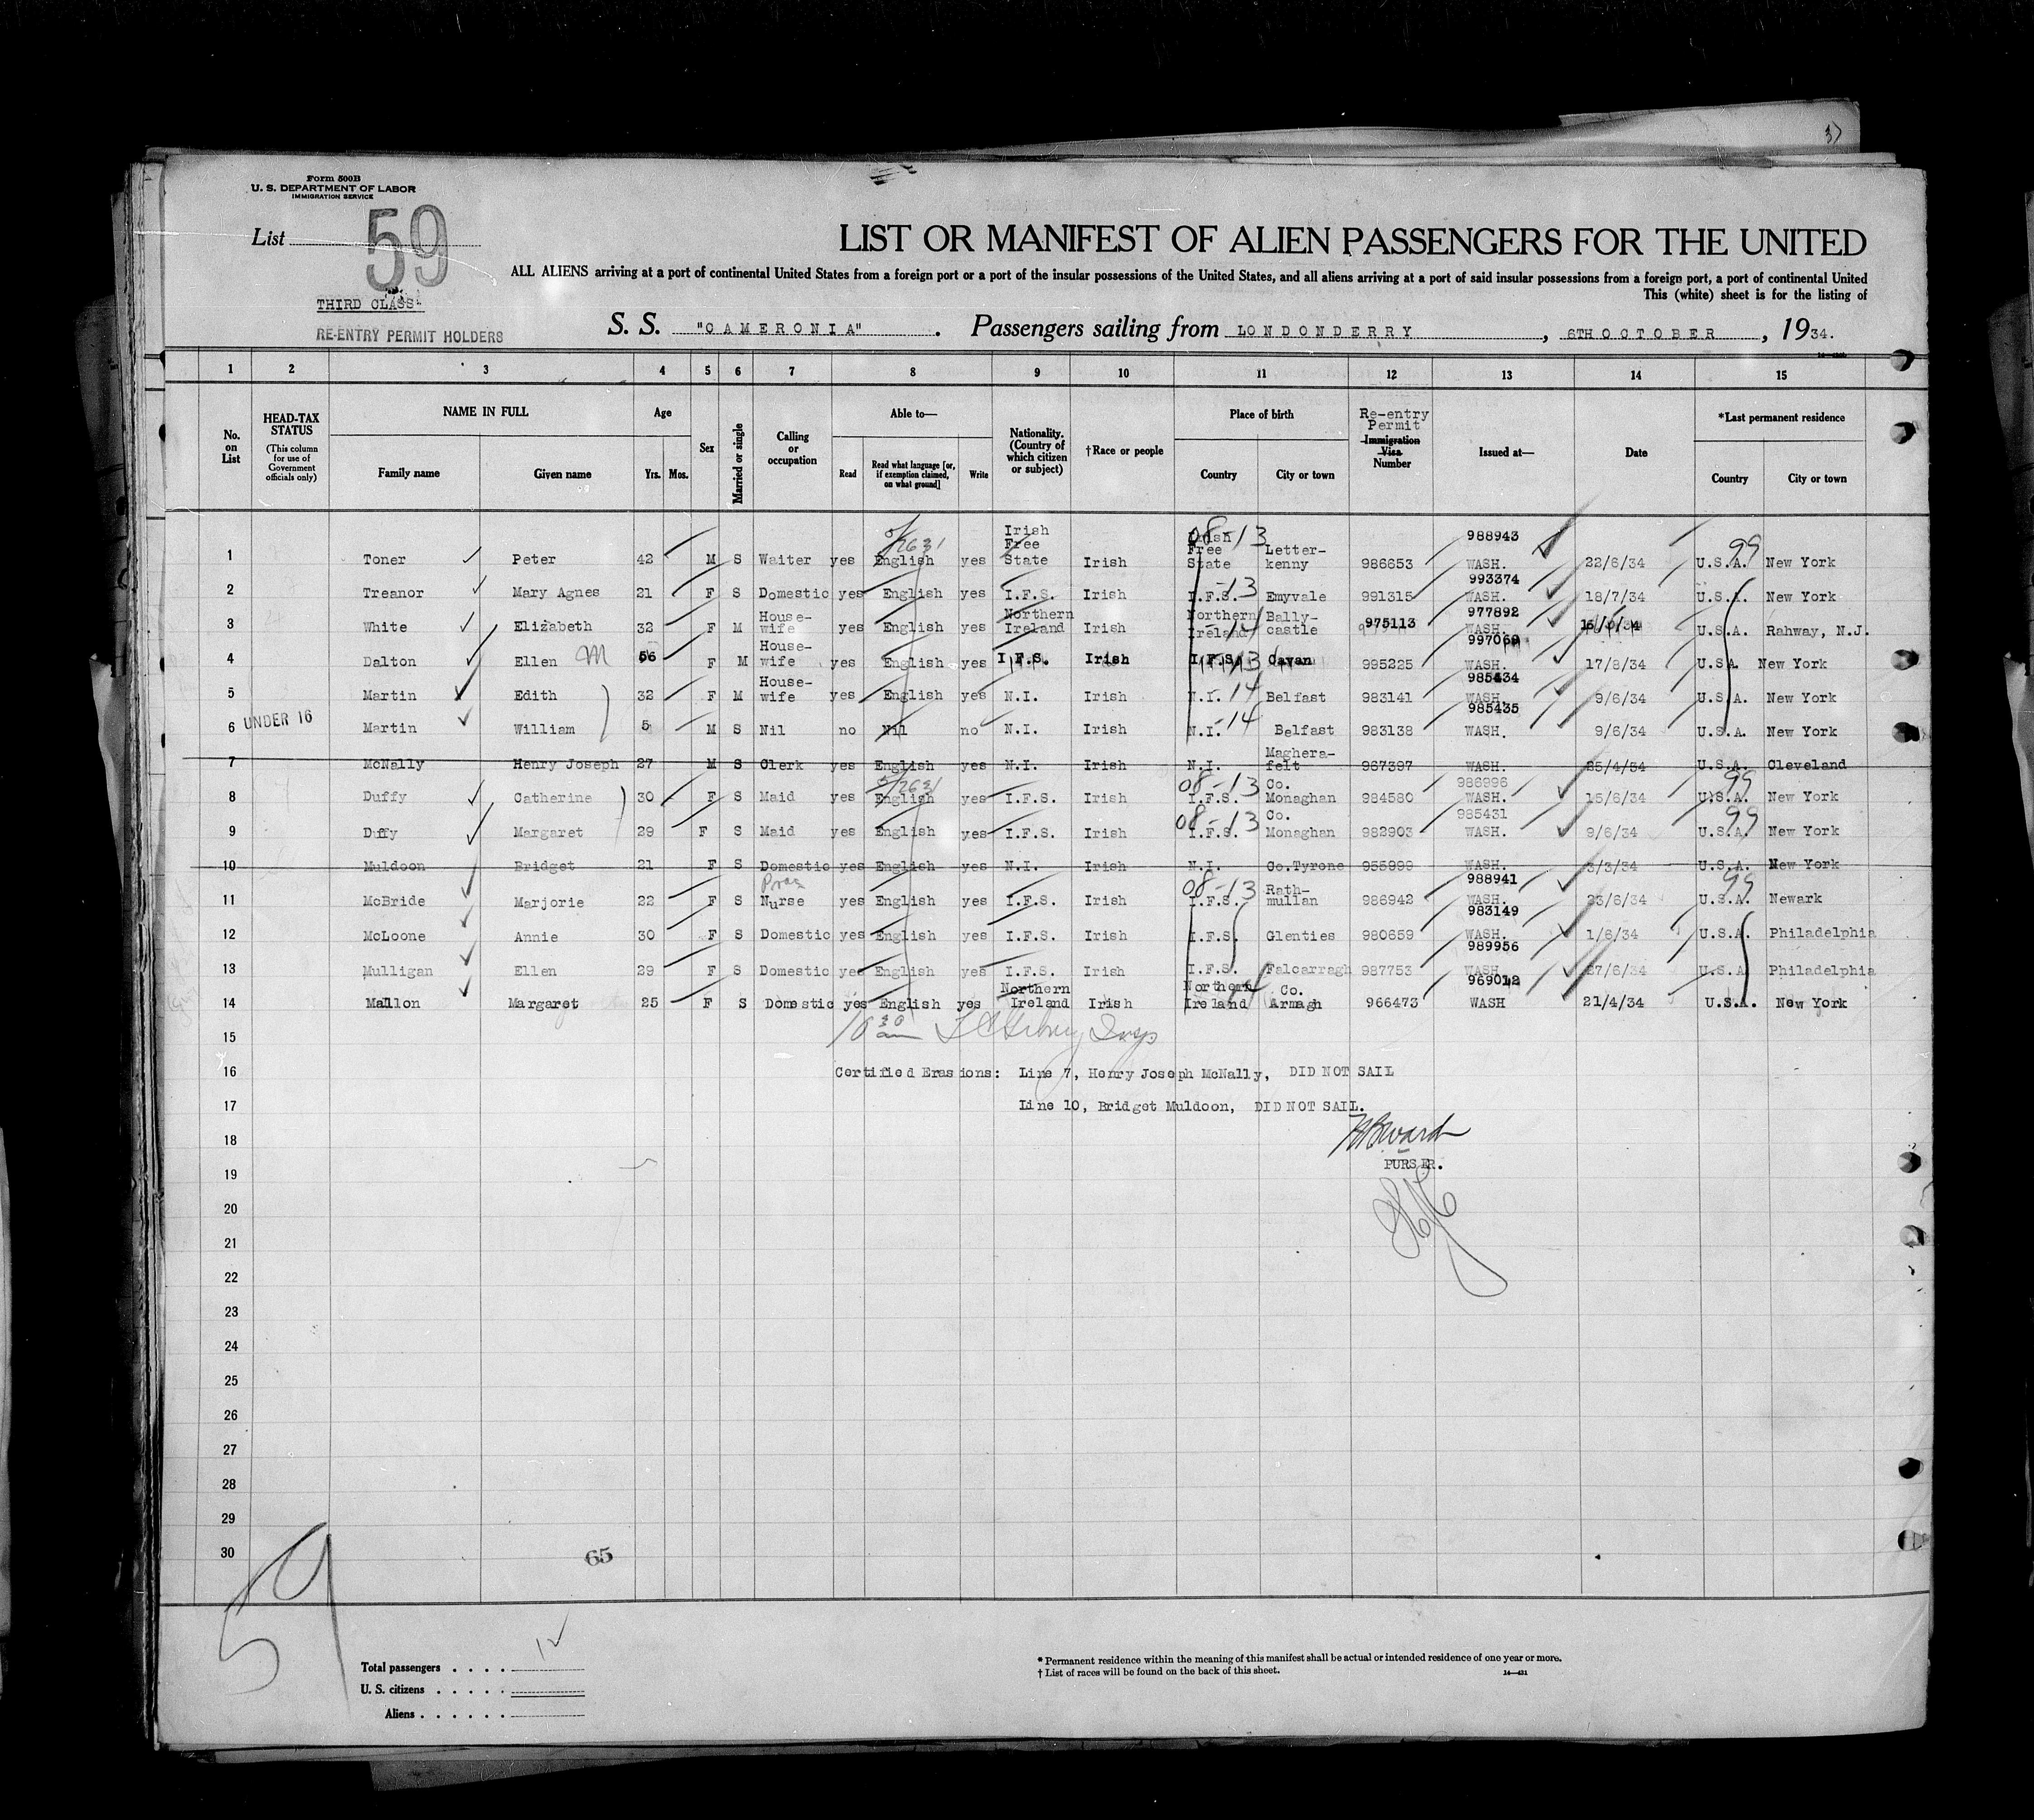 37
Form 500B
U. S. DEPARTMENT OF LABOR
IMMIGRATION SERVICE
List 59
LIST OR MANIFEST OF ALIEN PASSENGERS FOR THE UNITED
ALL ALIENS arriving at a port of continental United States from a foreign port or a port of the insular possessions of the United States, and all aliens arriving at a port of said insular possessions from a foreign port, a port of continental United
This (white) sheet is for the listing of
THIRD CLASS
RE-ENTRY PERMIT HOLDERS
S. S. "CAMERONIA". Passengers sailing from LONDONDERRY, 6TH OCTOBER, 1934.
1 2 3 4 5 6 7 8 9 10 11 12 13 14 15
No. on List
HEAD-TAX STATUS (This column for use of Government officials only)
NAME IN FULL Family name Given name
Age Yrs. Mos.
Sex
Married or single
Calling or occupation
Able to— Read Read what language [or, if exemption claimed, on what ground] Write
Nationality. (Country of which citizen or subject)
†Race or people
Place of birth Country City or town
Re-entry Permit Immigration Visa Number
Issued at—
Date
*Last permanent residence Country City or town
1 Toner Peter 42 M S Waiter yes English yes Irish Free State Irish Irish Free State 08-13 Letter-kenny 986653 988943 WASH. 22/6/34 U.S.A. 99 New York
2 Treanor Mary Agnes 21 F S Domestic yes English yes I.F.S. Irish I.F.S. -13 Emyvale 991315 993374 WASH. 18/7/34 U.S.A. New York
3 White Elizabeth 32 F M House-wife yes English yes Northern Ireland Irish Northern Ireland 14 Bally-castle 975113 977892 WASH. U.S.A. Rahway, N.J.
4 Dalton Ellen M 56 F M House-wife yes English yes I.F.S. Irish I.F.S. 13 Cavan 995225 WASH. 17/8/34 U.S.A. New York
5 Martin Edith 32 F M House-wife yes English yes N.I. Irish N.I. 14 Belfast 983141 985434 WASH. 9/6/34 U.S.A. New York
UNDER 16
6 Martin William 5 M S Nil no Nil no N.I. Irish N.I. -14 Belfast 983138 985435 WASH. 9/6/34 U.S.A. New York
7 McNally Henry Joseph 27 M S Clerk yes English yes N.I. Irish N.I. Maghera-felt 967397 WASH. 25/4/34 U.S.A. Cleveland
8 Duffy Catherine 30 F S Maid yes English yes I.F.S. Irish I.F.S. 08-13 Co. Monaghan 984580 986996 WASH. 15/6/34 U.S.A. 99 New York
9 Duffy Margaret 29 F S Maid yes English yes I.F.S. Irish I.F.S. 08-13 Co. Monaghan 982903 985431 WASH. 9/6/34 U.S.A. 99 New York
10 Muldoon Bridget 21 F S Domestic yes English yes N.I. Irish N.I. Co.Tyrone 955999 WASH. 3/3/34 U.S.A. New York
11 McBride Marjorie 22 F S Nurse yes English yes I.F.S. Irish I.F.S. 08-13 Rath-mullan 986942 988941 WASH. 23/6/34 U.S.A. 99 Newark
12 McLoone Annie 30 F S Domestic yes English yes I.F.S. Irish I.F.S. Glenties 980659 983149 WASH. 1/6/34 U.S.A. Philadelphia
13 Mulligan Ellen 29 F S Domestic yes English yes I.F.S. Irish I.F.S. Falcarragh 987753 989956 WASH 27/6/34 U.S.A. Philadelphia
14 Mallon Margaret 25 F S Domestic yes English yes Northern Ireland Irish Northern Ireland 14 Co. Armagh 966473 969012 WASH 21/4/34 U.S.A. New York
15 10 30 am Insp
16 Certified Erasions: Line 7, Henry Joseph McNally, DID NOT SAIL
17 Line 10, Bridget Muldoon, DID NOT SAIL.
18
19 PURSER.
20
21
22
23
24
25
26
27
28
29
30
65
59
Total passengers . . . . 12
U. S. citizens . . . . .
Aliens . . . . . .
* Permanent residence within the meaning of this manifest shall be actual or intended residence of one year or more.
† List of races will be found on the back of this sheet. 14—421